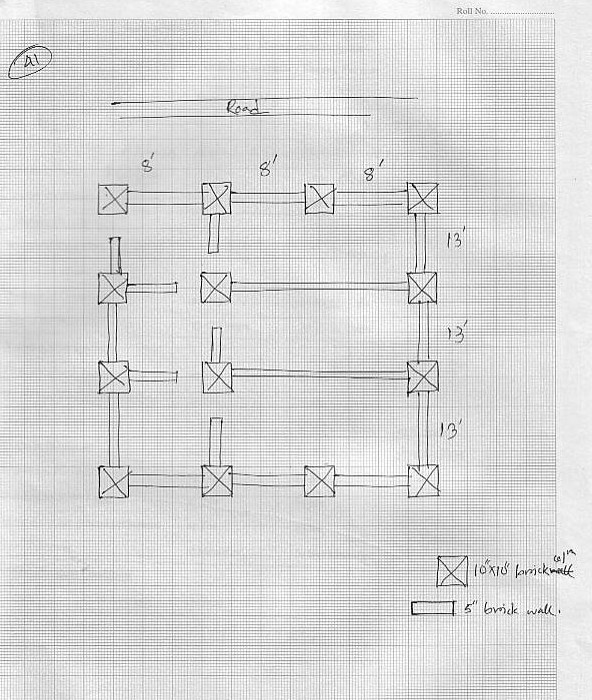 Roll No. ........................
A1
Road
8' 8' 8'
13'
13'
13'
10"x10" brick colm
5" brick wall.